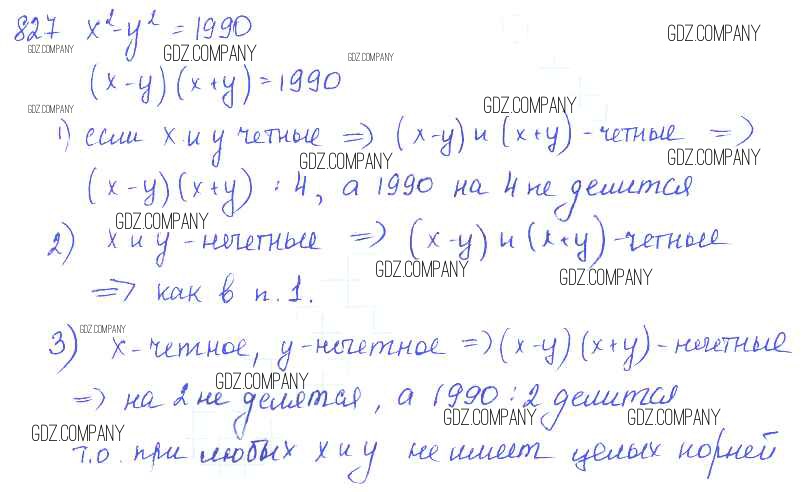 827 x²-y² = 1990
GDZ.COMPANY GDZ.COMPANY GDZ.COMPANY GDZ.COMPANY
(x-y)(x+y)=1990
GDZ.COMPANY GDZ.COMPANY
1) если x и y четные => (x-y) и (x+y) - четные =>
GDZ.COMPANY GDZ.COMPANY
(x-y)(x+y) : 4, а 1990 на 4 не делится
GDZ.COMPANY
2) x и y - нечетные => (x-y) и (x+y) - четные
GDZ.COMPANY GDZ.COMPANY
=> как в п. 1.
GDZ.COMPANY
3) x - четное, y - нечетное => (x-y)(x+y) - нечетные
GDZ.COMPANY
=> на 2 не делятся, а 1990 : 2 делится
GDZ.COMPANY GDZ.COMPANY GDZ.COMPANY
т.о. при любых x и y не имеет целых корней